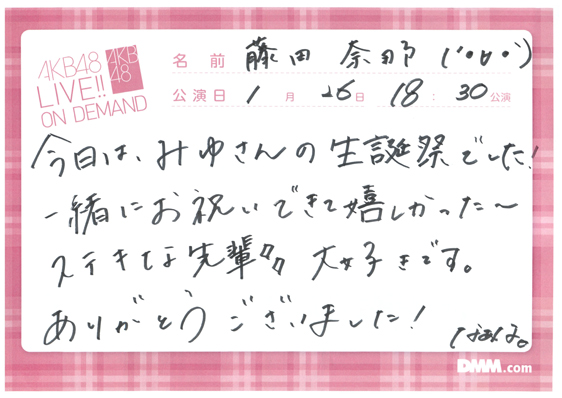 AKB48
LIVE!!
ON DEMAND
AKB
48
名前 藤田 奈那 (´°∀°`)
公演日 1月 26日 18:30公演
今日は、みゆさんの生誕祭でした!
一緒にお祝いできて嬉しかった〜
ステキな先輩々 大好きです。
ありがとうございました!
なぁな。
DMM.com